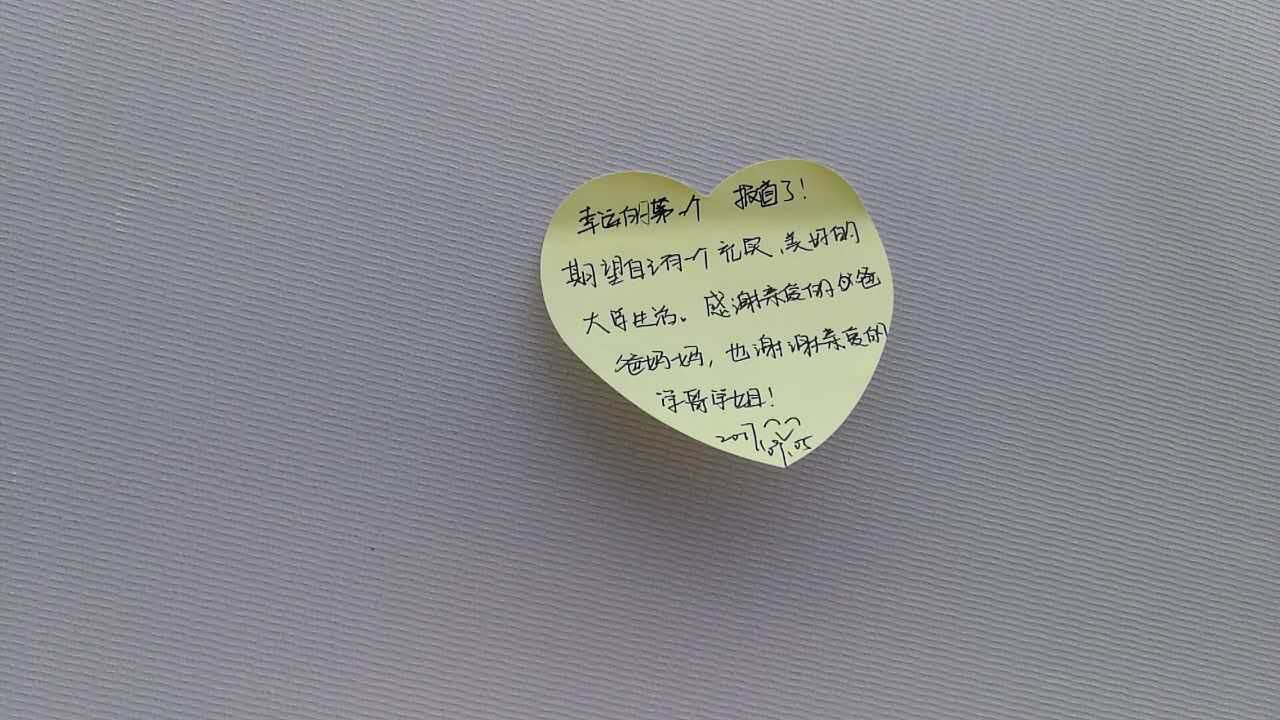 幸运的第一个 报道了！
期望自己有一个充实、美好的
大学生活。感谢亲爱的爸
爸妈妈，也谢谢亲爱的
学哥学姐！
2017.09.05